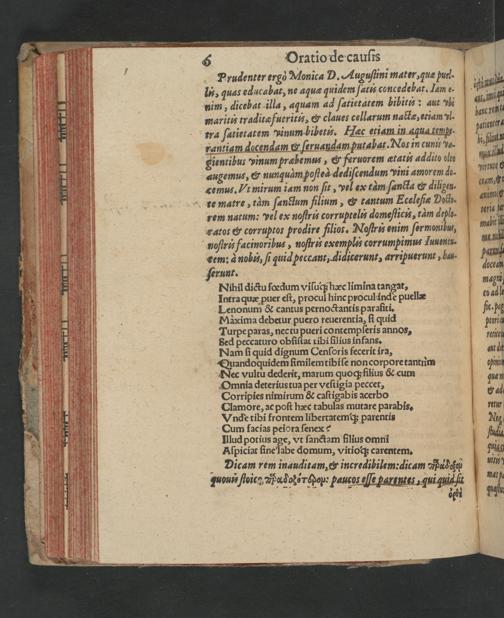 6 Oratio de causis
Prudenter ergò Monica D. Augustini mater, quæ puel-
lis, quas educabat, ne aquæ quidem satis concedebat. Iam e-
nim, dicebat illa, aquam ad satietatem bibitis: aut vbi
maritis traditæ fueritis, & claues cellarum nactæ, etiam vl-
tra satietatem vinum bibetis. Hæc etiam in aqua tempe-
rantiam docendam & seruandam putabat. Nos in cunis va-
gientibus vinum præbemus, & feruorem ætatis addito oleo
augemus, & nunquàm posteà dediscendum vini amorem do-
cemus. Vt mirum iam non sit, vel ex tàm sancta & diligen-
te matre, tàm sanctum filium, & tantum Ecclesiæ Docto-
rem natum: vel ex nostris corruptelis domesticis, tàm deplo-
ratos & corruptos prodire filios. Nostris enim sermonibus,
nostris facinoribus, nostris exemplis corrumpimus Iuuentu-
tem: à nobis, si quid peccant, didicerunt, arripuerunt, hau-
serunt.
Nihil dictu fœdum visuq; hæc limina tangat,
Intra quæ puer est, procul hinc procul inde puellæ
Lenonum & cantus pernoctantis parasiti.
Maxima debetur puero reuerentia, si quid
Turpe paras, nec tu pueri contempseris annos,
Sed peccaturo obsistat tibi filius infans.
Nam si quid dignum Censoris fecerit ira,
Quandoquidem similem tibi se non corpore tantùm
Nec vultu dederit, morum quoq; filius & cum
Omnia deterius tua per vestigia peccet,
Corripies nimirum & castigabis acerbo
Clamore, ac post hæc tabulas mutare parabis.
Vnde tibi frontem libertatemq; parentis
Cum facias peiora senex?
Illud potius age, vt sanctam filius omni
Aspiciat sine labe domum, vitioq; carentem.
Dicam rem inauditam, & incredibilem: dicam
quouis stoic paucos esse parentes, qui quid sit